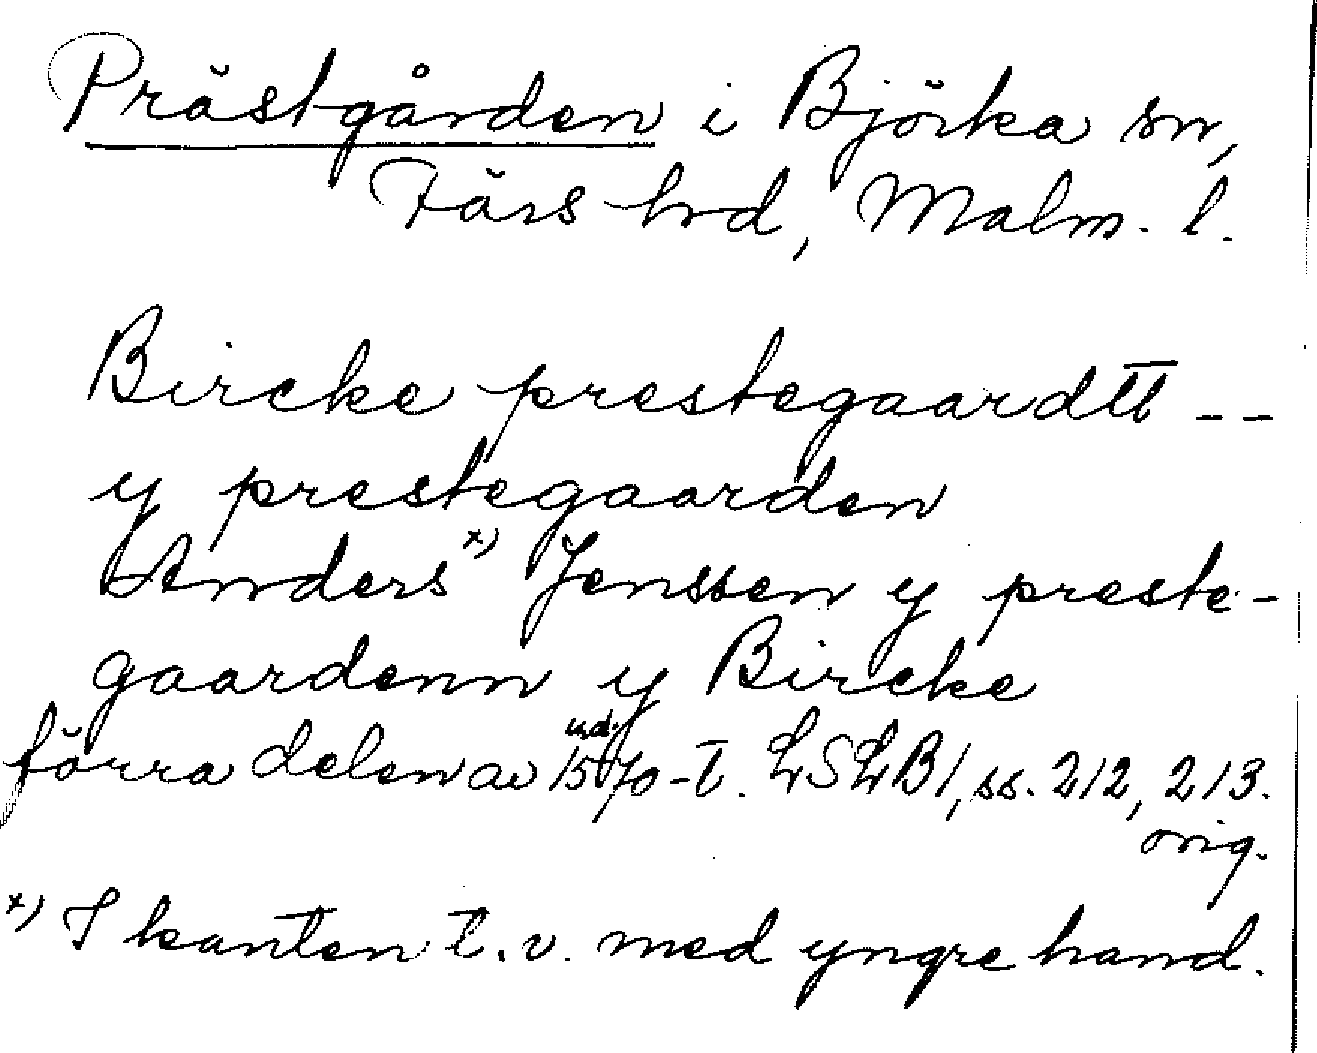 Prästgården i Björka sn,
Färs hrd, Malm. l.
Bircke prestegaardtt --
y prestegaarden
Anders x) Jenssen y preste-
gaardenn y Bircke
und.
förra delen av 1570-t. LSLB 1, ss. 212, 213.
orig.
x) I kanten t.v. med yngre hand.